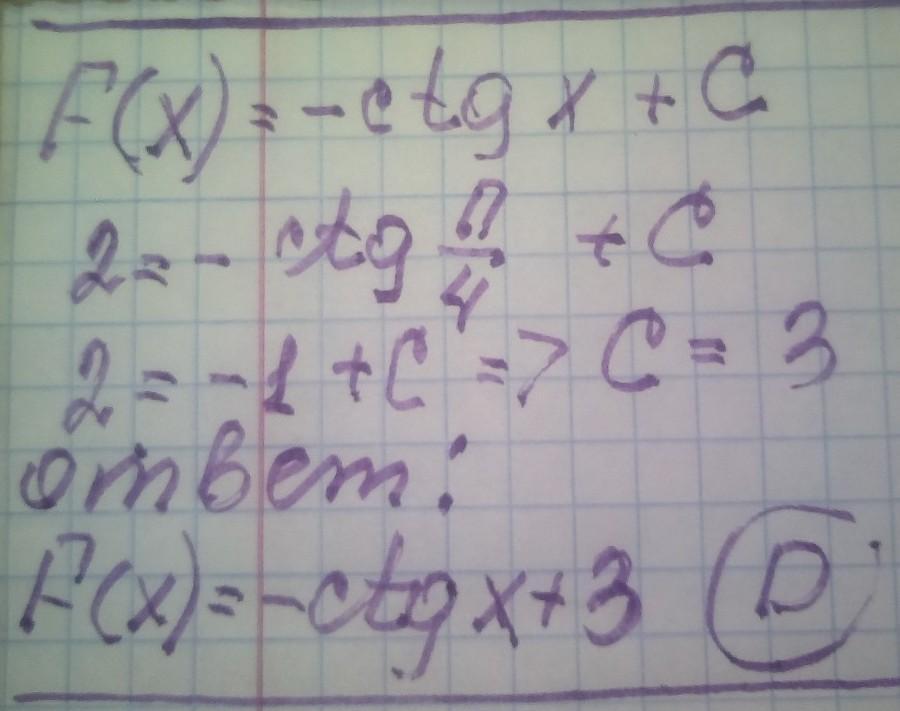 F(x) = -ctg x + C
2 = - ctg π/4 + C
2 = -1 + C => C = 3
ответ:
F(x) = -ctg x + 3 D